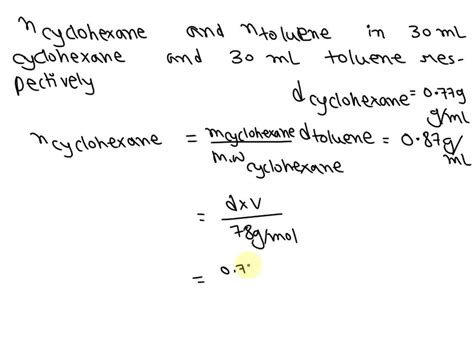 n cyclohexane and n toluene in 30 ml
cyclohexane and 30 ml toluene res-
pectively
d cyclohexane = 0.77g
g/ml
n cyclohexane = m cyclohexane / M.W cyclohexane
d toluene = 0.87g/ml
= d x V / 78g/mol
= 0.7